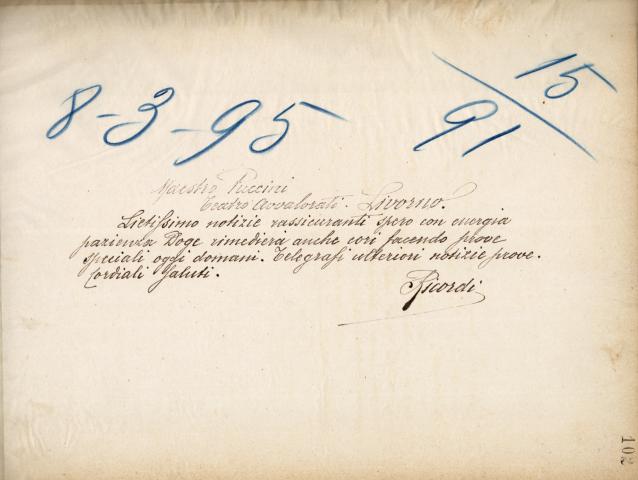 8-3-95
15
91
Maestro Puccini
Teatro Avvalorati. Livorno.
Lietissimo notizie rassicuranti spero con energia
pazienza Doge rimedierà anche cori facendo prove
speciali oggi domani. Telegrafi ulteriori notizie prove.
Cordiali Saluti.
Ricordi
102